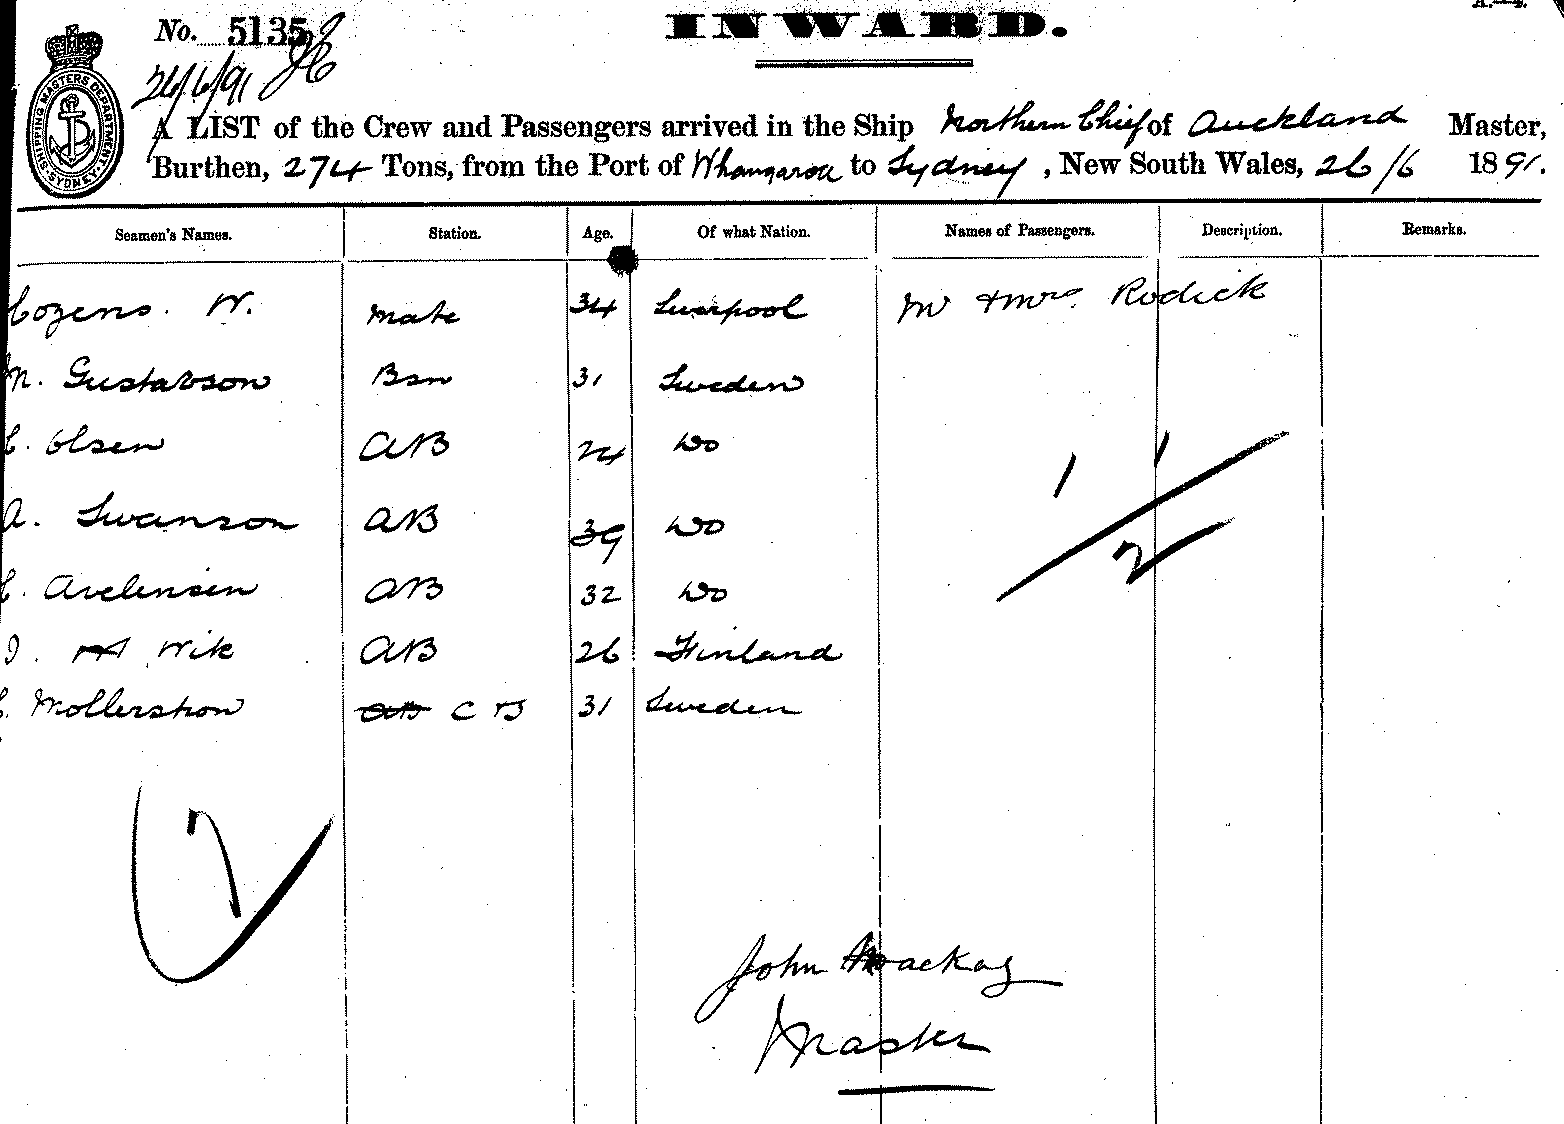 No. 5135
INWARD.
26/6/91
SHIPPING MASTERS DEPARTMENT SYDNEY
A LIST of the Crew and Passengers arrived in the Ship Northern Chief of Auckland Master,
Burthen, 274 Tons, from the Port of Whangaroa to Sydney, New South Wales, 26/6 1891.
Seamen's Names. Station. Age. Of what Nation. Names of Passengers. Description. Remarks.
Cozens. W. Mate 34 Liverpool Mr & Mrs Rodick
M. Gustavson Bsn 31 Sweden
C. Olsen AB 24 Do
A. Swanson AB 39 Do
C. Avelensen AB 32 Do
J. Wik AB 26 Finland
C. Mollershon AB C B 31 Sweden
1 1
2
7
John Mackay
Master